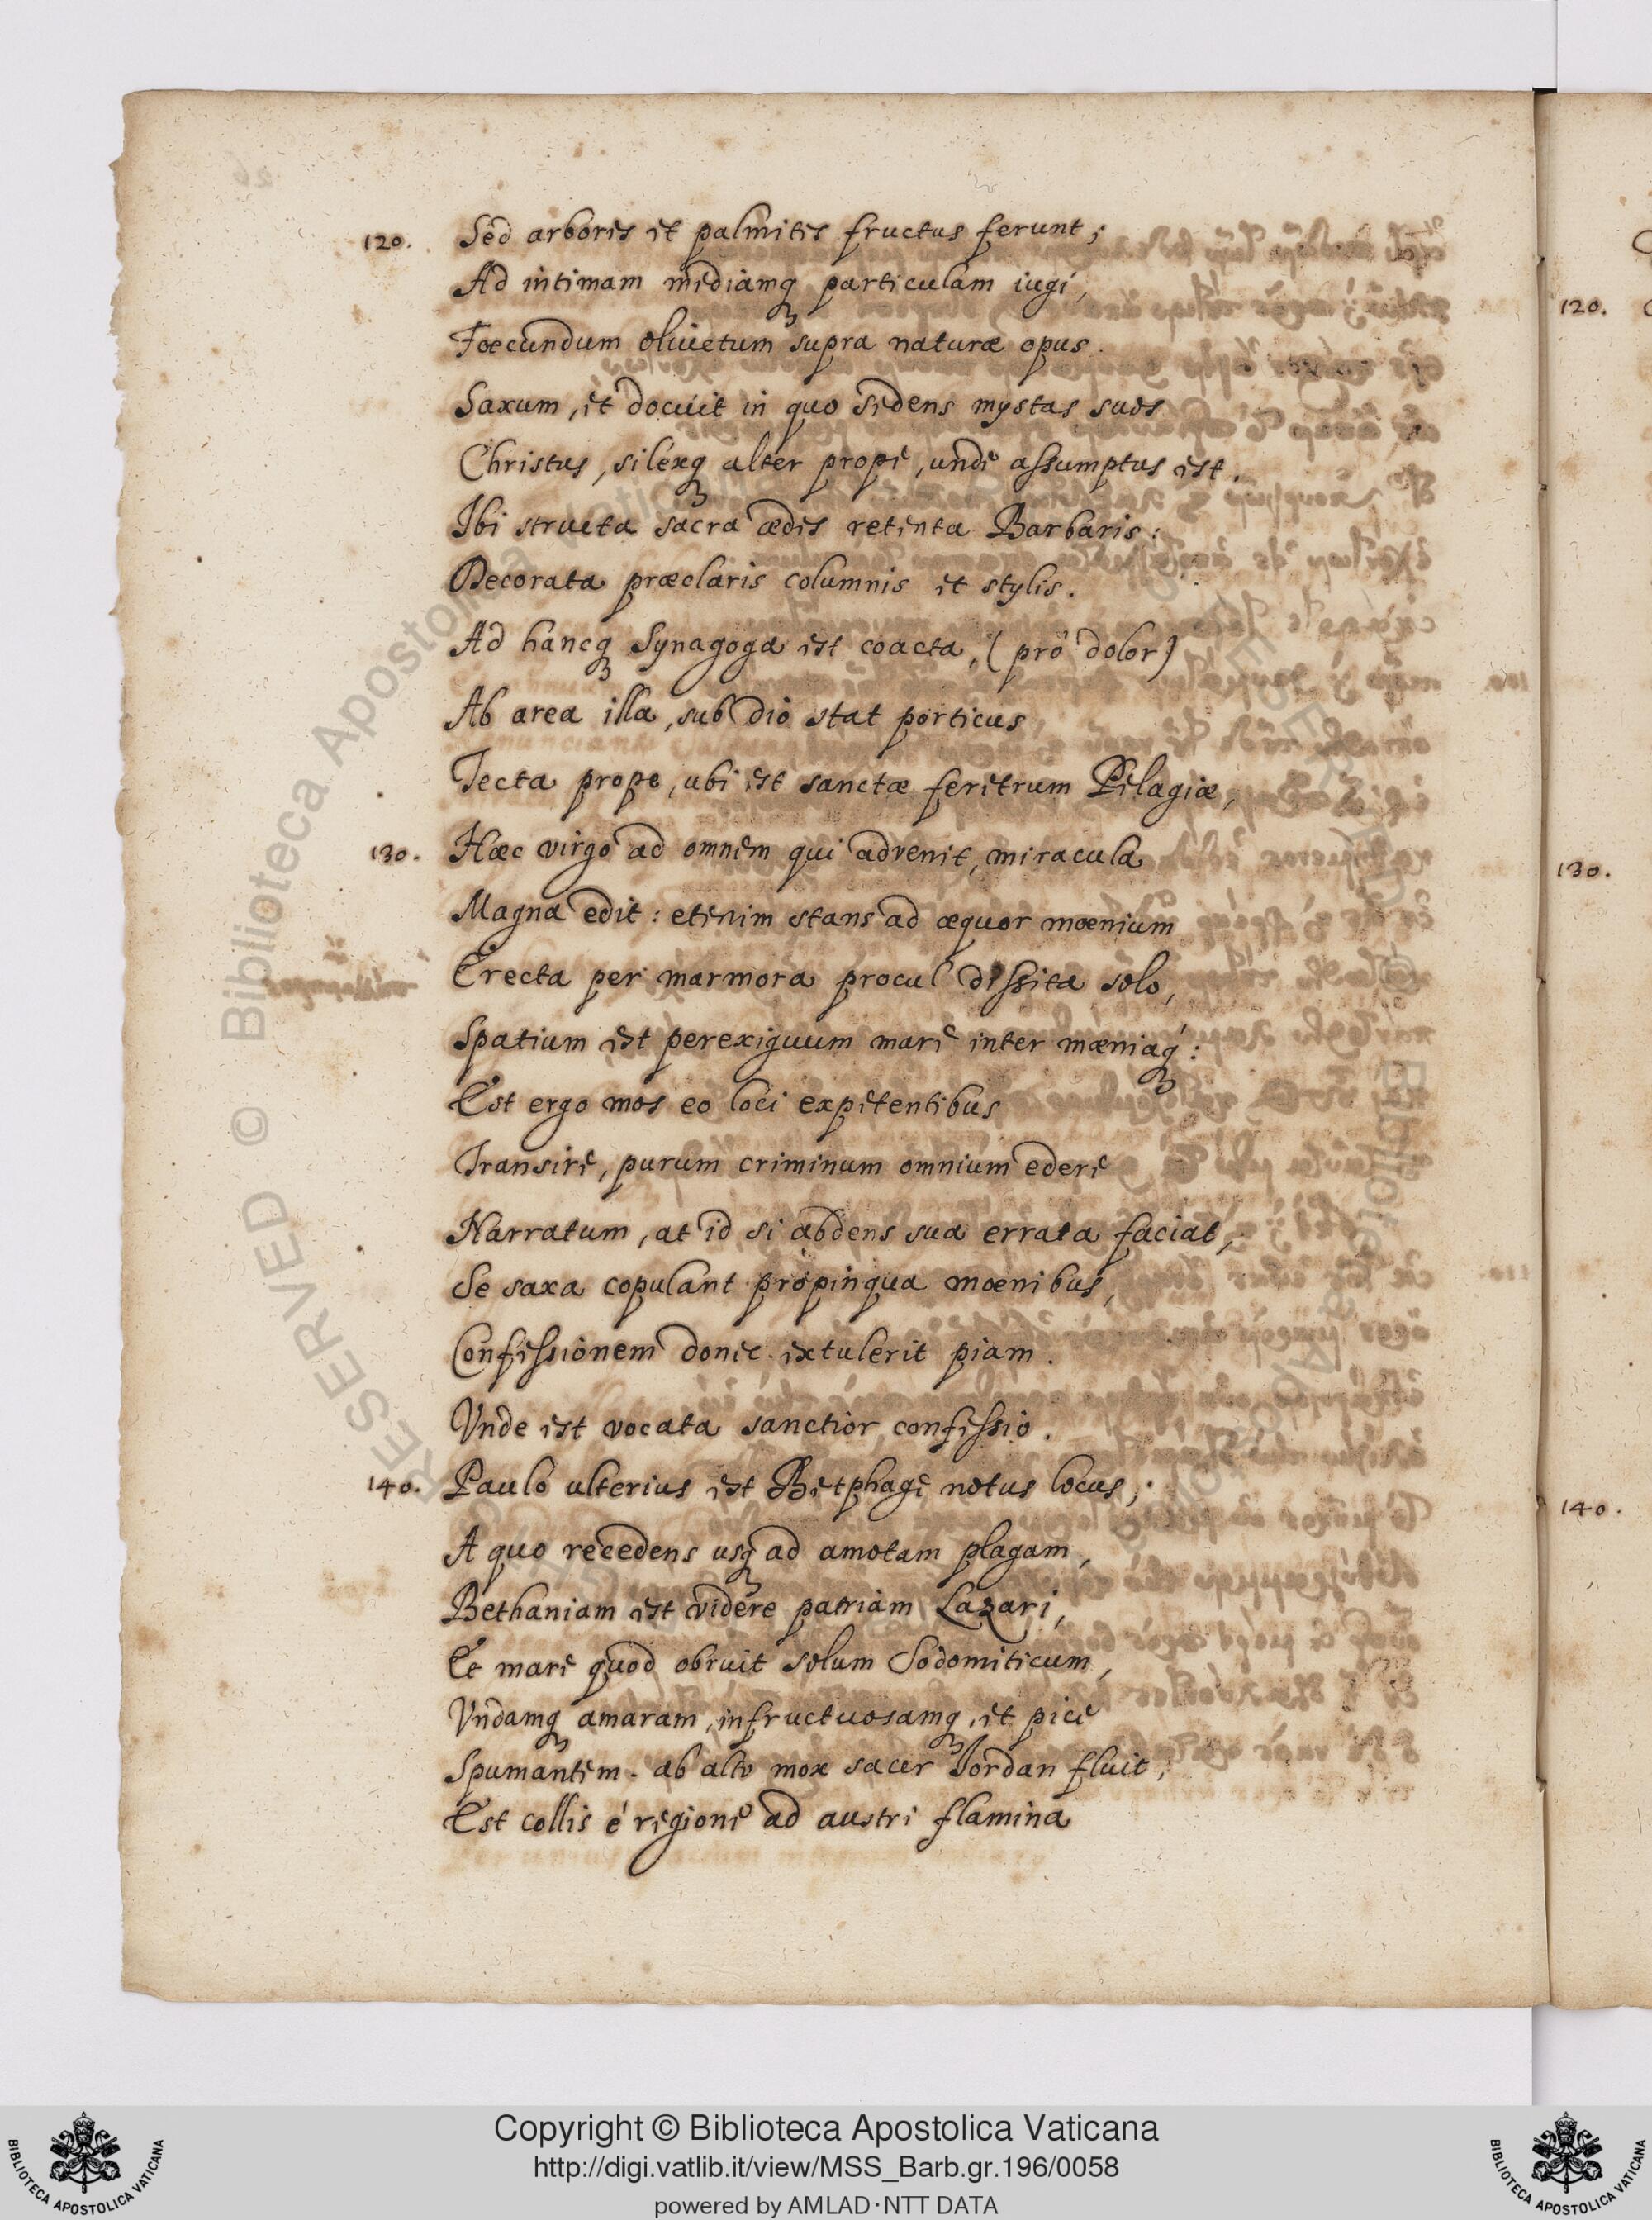 120. Sed arbores et palmites fructus ferunt;
Ad intimam mediamq particulam iugi,
Foecundum oliuetum supra naturæ opus.
Saxum, et docuit in quo sedens mystas suos
Christus, silexq alter prope, unde assumptus est.
Ibi structa sacra ædes retenta Barbaris:
Decorata præclaris columnis et stylis.
Ad hancq Synagoga est coacta, (pro dolor)
Ab area illa, sub dio stat porticus
Tecta prope, ubi est sanctæ feretrum Pelagiæ,
130. Hæc virgo ad omnem qui advenit, miracula
Magna edit: etenim stans ad æquor mœnium
Erecta per marmora procul dissita solo,
Spatium est perexiguum mare inter mœniaq́:
Est ergo mos eo loci expetentibus
Transire, purum criminum omnium edere
Narratum, at id si abdens sua errata faciat,
Se saxa copulant propinqua mœnibus,
Confessionem donec extulerit piam.
Vnde est vocata sanctior confessio.
140. Paulo ulterius est Betphage notus locus;
A quo recedens usq ad amotam plagam,
Bethaniam est videre patriam Lazari,
Et mare quod obruit solum Sodomiticum,
Vndamq amaram, infructuosamq, et pice
Spumantem. ab alto mox sacer Jordan fluit;
Est collis é regione ad austri flamina
120.
130.
140.
© Biblioteca Apostolica Vaticana
RESERVED
Copyright © Biblioteca Apostolica Vaticana
http://digi.vatlib.it/view/MSS_Barb.gr.196/0058
powered by AMLAD·NTT DATA
BIBLIOTECA APOSTOLICA VATICANA
BIBLIOTECA APOSTOLICA VATICANA